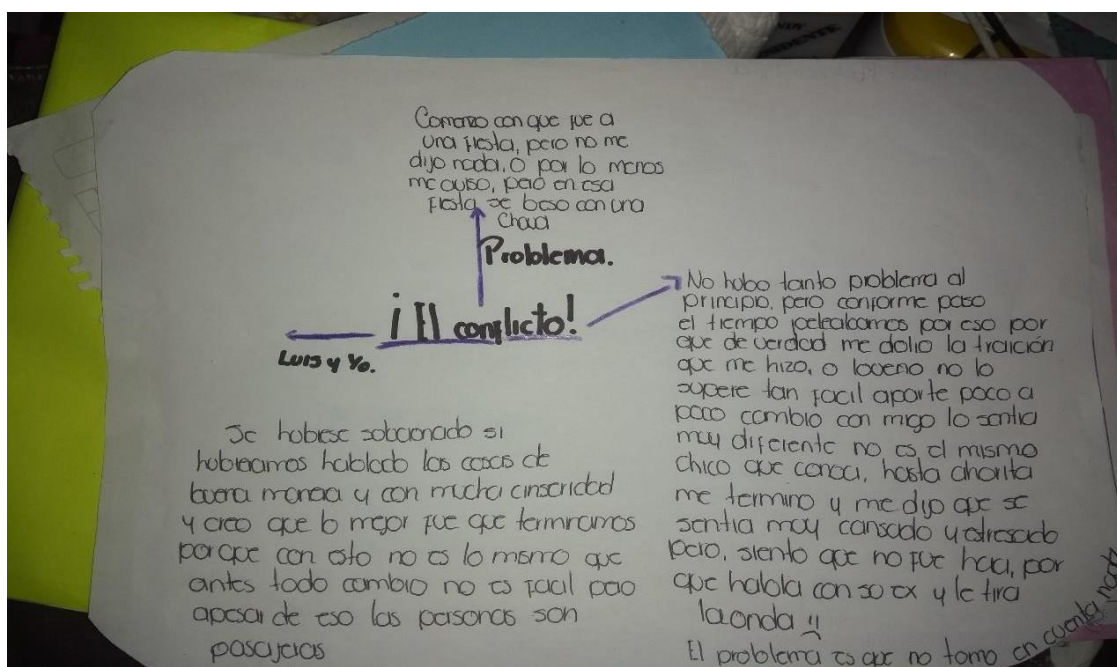 Comenzo con que fue a
una fiesta, pero no me
dijo nada, o por lo menos
me aviso, pero en esa
fiesta se beso con una
Chava
Problema.
¡El conflicto!
Luis y Yo.
No hubo tanto problema al
principio, pero conforme paso
el tiempo peleabamos por eso por
que de verdad me dolio la traición
que me hizo, o bueno no lo
supere tan facil aparte poco a
poco cambio con migo lo sentia
muy diferente no es el mismo
chico que conoci, hasta ahorita
me termino y me dijo que se
sentia muy cansado y estresado
pero, siento que no fue haci, por
que habla con su ex y le tira
la onda !!
El problema es que no tomo en cuenta nada
Se hubiese solucionado si
hubieramos hablado las cosas de
buena manera y con mucha cinseridad
y creo que lo mejor fue que terminamos
porque con esto no es lo mismo que
antes todo cambio no es facil pero
apesar de eso las personas son
pasajeras